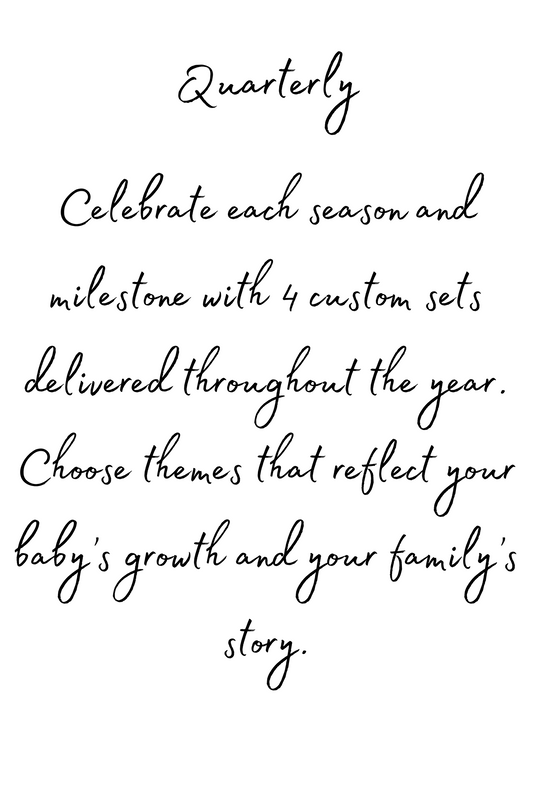 Quarterly
Celebrate each season and
milestone with 4 custom sets
delivered throughout the year.
Choose themes that reflect your
baby's growth and your family's
story.